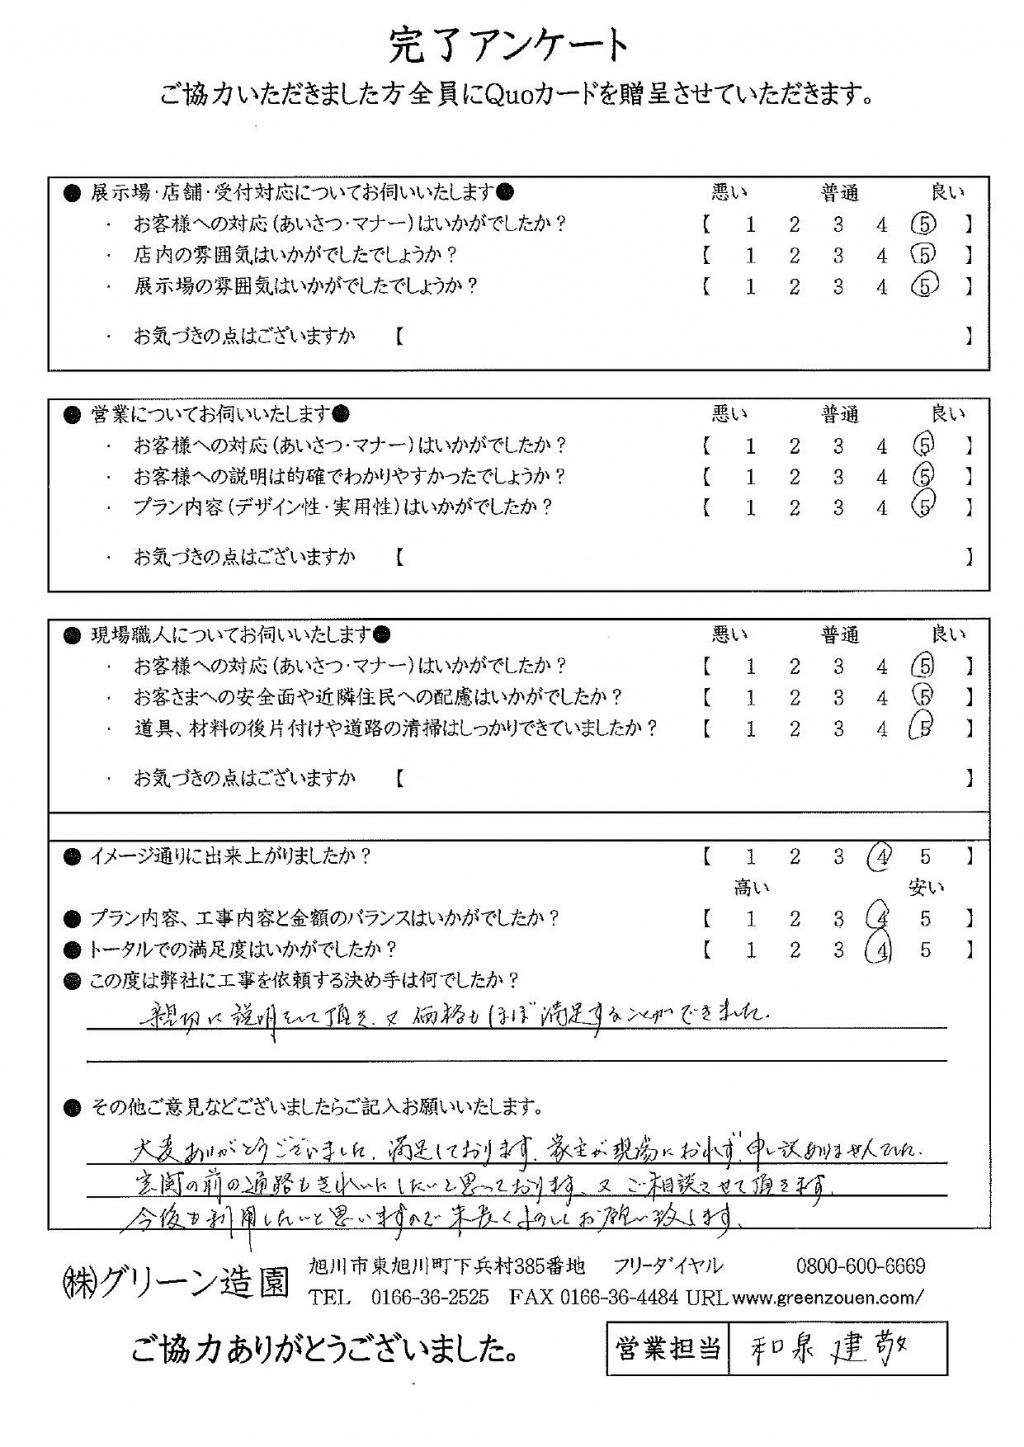 完了アンケート
ご協力いただきました方全員にQuoカードを贈呈させていただきます。
● 展示場・店舗・受付対応についてお伺いいたします● 悪い 普通 良い
・ お客様への対応(あいさつ・マナー)はいかがでしたか? 【 1 2 3 4 ⑤ 】
・ 店内の雰囲気はいかがでしたでしょうか? 【 1 2 3 4 ⑤ 】
・ 展示場の雰囲気はいかがでしたでしょうか? 【 1 2 3 4 ⑤ 】
・ お気づきの点はございますか 【 】
● 営業についてお伺いいたします● 悪い 普通 良い
・ お客様への対応(あいさつ・マナー)はいかがでしたか? 【 1 2 3 4 ⑤ 】
・ お客様への説明は的確でわかりやすかったでしょうか? 【 1 2 3 4 ⑤ 】
・ プラン内容(デザイン性・実用性)はいかがでしたか? 【 1 2 3 4 ⑤ 】
・ お気づきの点はございますか 【 】
● 現場職人についてお伺いいたします● 悪い 普通 良い
・ お客様への対応(あいさつ・マナー)はいかがでしたか? 【 1 2 3 4 ⑤ 】
・ お客さまへの安全面や近隣住民への配慮はいかがでしたか? 【 1 2 3 4 ⑤ 】
・ 道具、材料の後片付けや道路の清掃はしっかりできていましたか? 【 1 2 3 4 ⑤ 】
・ お気づきの点はございますか 【 】
● イメージ通りに出来上がりましたか? 【 1 2 3 ④ 5 】
高い 安い
● プラン内容、工事内容と金額のバランスはいかがでしたか? 【 1 2 3 ④ 5 】
● トータルでの満足度はいかがでしたか? 【 1 2 3 ④ 5 】
● この度は弊社に工事を依頼する決め手は何でしたか?
親切に説明をして頂き、又価格もほぼ満足することができました。
● その他ご意見などございましたらご記入お願いいたします。
大変ありがとうございました。満足しております。家主が現場におれず、申し訳ありませんでした。
玄関の前の通路もきれいにしたいと思っております。又ご相談させて頂きます。
今後も利用したいと思いますので末長くよろしくお願い致します。
㈱グリーン造園 旭川市東旭川町下兵村385番地 フリーダイヤル 0800-600-6669
TEL 0166-36-2525 FAX 0166-36-4484 URL www.greenzouen.com/
ご協力ありがとうございました。 営業担当 和泉 建敬